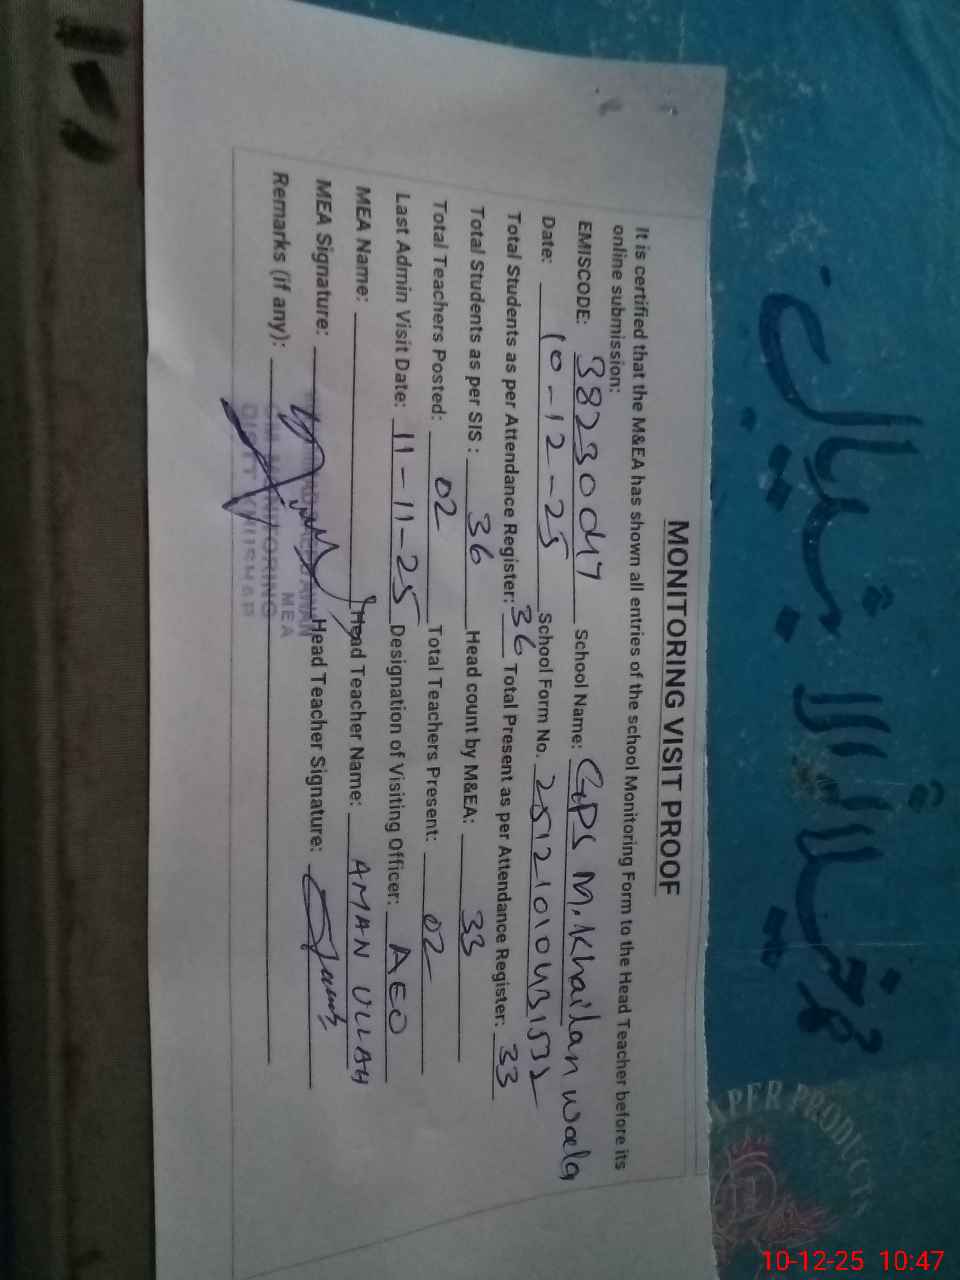 MONITORING VISIT PROOF
It is certified that the M&EA has shown all entries of the school Monitoring Form to the Head Teacher before its
online submission:
EMISCODE: 38230047 School Name: GPS M. Khailan wala
Date: 10-12-25 School Form No. 251210043152
Total Students as per Attendance Register: 36 Total Present as per Attendance Register: 33
Total Students as per SIS : 36 Head count by M&EA: 33
Total Teachers Posted: 02 Total Teachers Present: 02
Last Admin Visit Date: 11-11-25 Designation of Visiting Officer: AEO
MEA Name: Head Teacher Name: AMAN ULLAH
MEA Signature: Head Teacher Signature:
Remarks (if any):
MEA
MONITORING
KHUSHAB
PAPER PRODUCTS
10-12-25 10:47